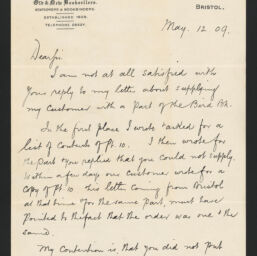 Old & New Booksellers.
STATIONERS & BOOKBINDERS.
ESTABLISHED
TELEPHONE
BRISTOL.
May. 12 09.
Dear Sir
I am not at all satisfied with
your reply to my letter about supplying
my Customer with a part of the Bird Bk.
In the first place I wrote & asked for a
list of Contents of Pt. 10. I then wrote for
the part & you replied that you could not supply.
Within a few days our Customer wrote for a
Copy of Pt. 10 this letter coming from Bristol
at that time for the same part, must have
pointed to the fact that the order was one & the
same.
My Contention is, that you did not put